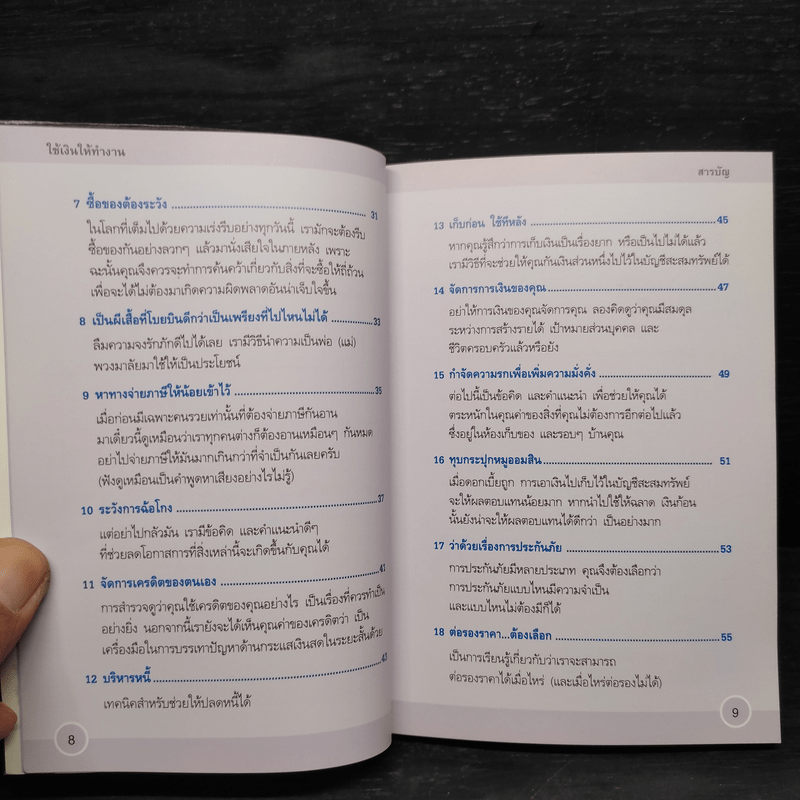 ใช้เงินให้ทำงาน
7 ซื้อของต้องระวัง 31
ในโลกที่เต็มไปด้วยความเร่งรีบอย่างทุกวันนี้ เรามักจะต้องรีบ
ซื้อของกันอย่างลวกๆ แล้วมานั่งเสียใจในภายหลัง เพราะ
ฉะนั้นคุณจึงควรจะทำการค้นคว้าเกี่ยวกับสิ่งที่จะซื้อให้ถี่ถ้วน
เพื่อจะได้ไม่ต้องมาเกิดความผิดพลาดอันน่าเจ็บใจขึ้น
8 เป็นผีเสื้อที่โบยบินดีกว่าเป็นเพรียงที่ไปไหนไม่ได้ 33
ลืมความจงรักภักดีไปได้เลย เรามีวิธีนำความเป็นพ่อ (แม่)
พวงมาลัยมาใช้ให้เป็นประโยชน์
9 หาทางจ่ายภาษีให้น้อยเข้าไว้ 35
เมื่อก่อนมีเฉพาะคนรวยเท่านั้นที่ต้องจ่ายภาษีกันอาน
มาเดี๋ยวนี้ดูเหมือนว่าเราทุกคนต่างก็ต้องอานเหมือนๆ กันหมด
อย่าไปจ่ายภาษีให้มันมากเกินกว่าที่จำเป็นกันเลยครับ
(ฟังดูเหมือนเป็นคำพูดหาเสียงอย่างไรไม่รู้)
10 ระวังการฉ้อโกง 37
แต่อย่าไปกลัวมัน เรามีข้อคิด และคำแนะนำดีๆ
ที่ช่วยลดโอกาสการที่สิ่งเหล่านี้จะเกิดขึ้นกับคุณได้
11 จัดการเครดิตของตนเอง 41
การสำรวจดูว่าคุณใช้เครดิตของคุณอย่างไร เป็นเรื่องที่ควรทำเป็น
อย่างยิ่ง นอกจากนี้เรายังจะได้เห็นคุณค่าของเครดิตว่า เป็น
เครื่องมือในการบรรเทาปัญหาด้านกระแสเงินสดในระยะสั้นด้วย
12 บริหารหนี้ 43
เทคนิคสำหรับช่วยให้ปลดหนี้ได้
8
สารบัญ
13 เก็บก่อน ใช้ทีหลัง 45
หากคุณรู้สึกว่าการเก็บเงินเป็นเรื่องยาก หรือเป็นไปไม่ได้แล้ว
เรามีวิธีที่จะช่วยให้คุณกันเงินส่วนหนึ่งไปไว้ในบัญชีสะสมทรัพย์ได้
14 จัดการการเงินของคุณ 47
อย่าให้การเงินของคุณจัดการคุณ ลองคิดดูว่าคุณมีสมดุล
ระหว่างการสร้างรายได้ เป้าหมายส่วนบุคคล และ
ชีวิตครอบครัวแล้วหรือยัง
15 กำจัดความรกเพื่อเพิ่มความมั่งคั่ง 49
ต่อไปนี้เป็นข้อคิด และคำแนะนำ เพื่อช่วยให้คุณได้
ตระหนักในคุณค่าของสิ่งที่คุณไม่ต้องการอีกต่อไปแล้ว
ซึ่งอยู่ในห้องเก็บของ และรอบๆ บ้านคุณ
16 ทุบกระปุกหมูออมสิน 51
เมื่อดอกเบี้ยถูก การเอาเงินไปเก็บไว้ในบัญชีสะสมทรัพย์
จะให้ผลตอบแทนน้อยมาก หากนำไปใช้ให้ฉลาด เงินก้อน
นั้นยังน่าจะให้ผลตอบแทนได้ดีกว่า เป็นอย่างมาก
17 ว่าด้วยเรื่องการประกันภัย 53
การประกันภัยมีหลายประเภท คุณจึงต้องเลือกว่า
การประกันภัยแบบไหนมีความจำเป็น
และแบบไหนไม่ต้องมีก็ได้
18 ต่อรองราคา...ต้องเลือก 55
เป็นการเรียนรู้เกี่ยวกับว่าเราจะสามารถ
ต่อรองราคาได้เมื่อไหร่ (และเมื่อไหร่ต่อรองไม่ได้)
9